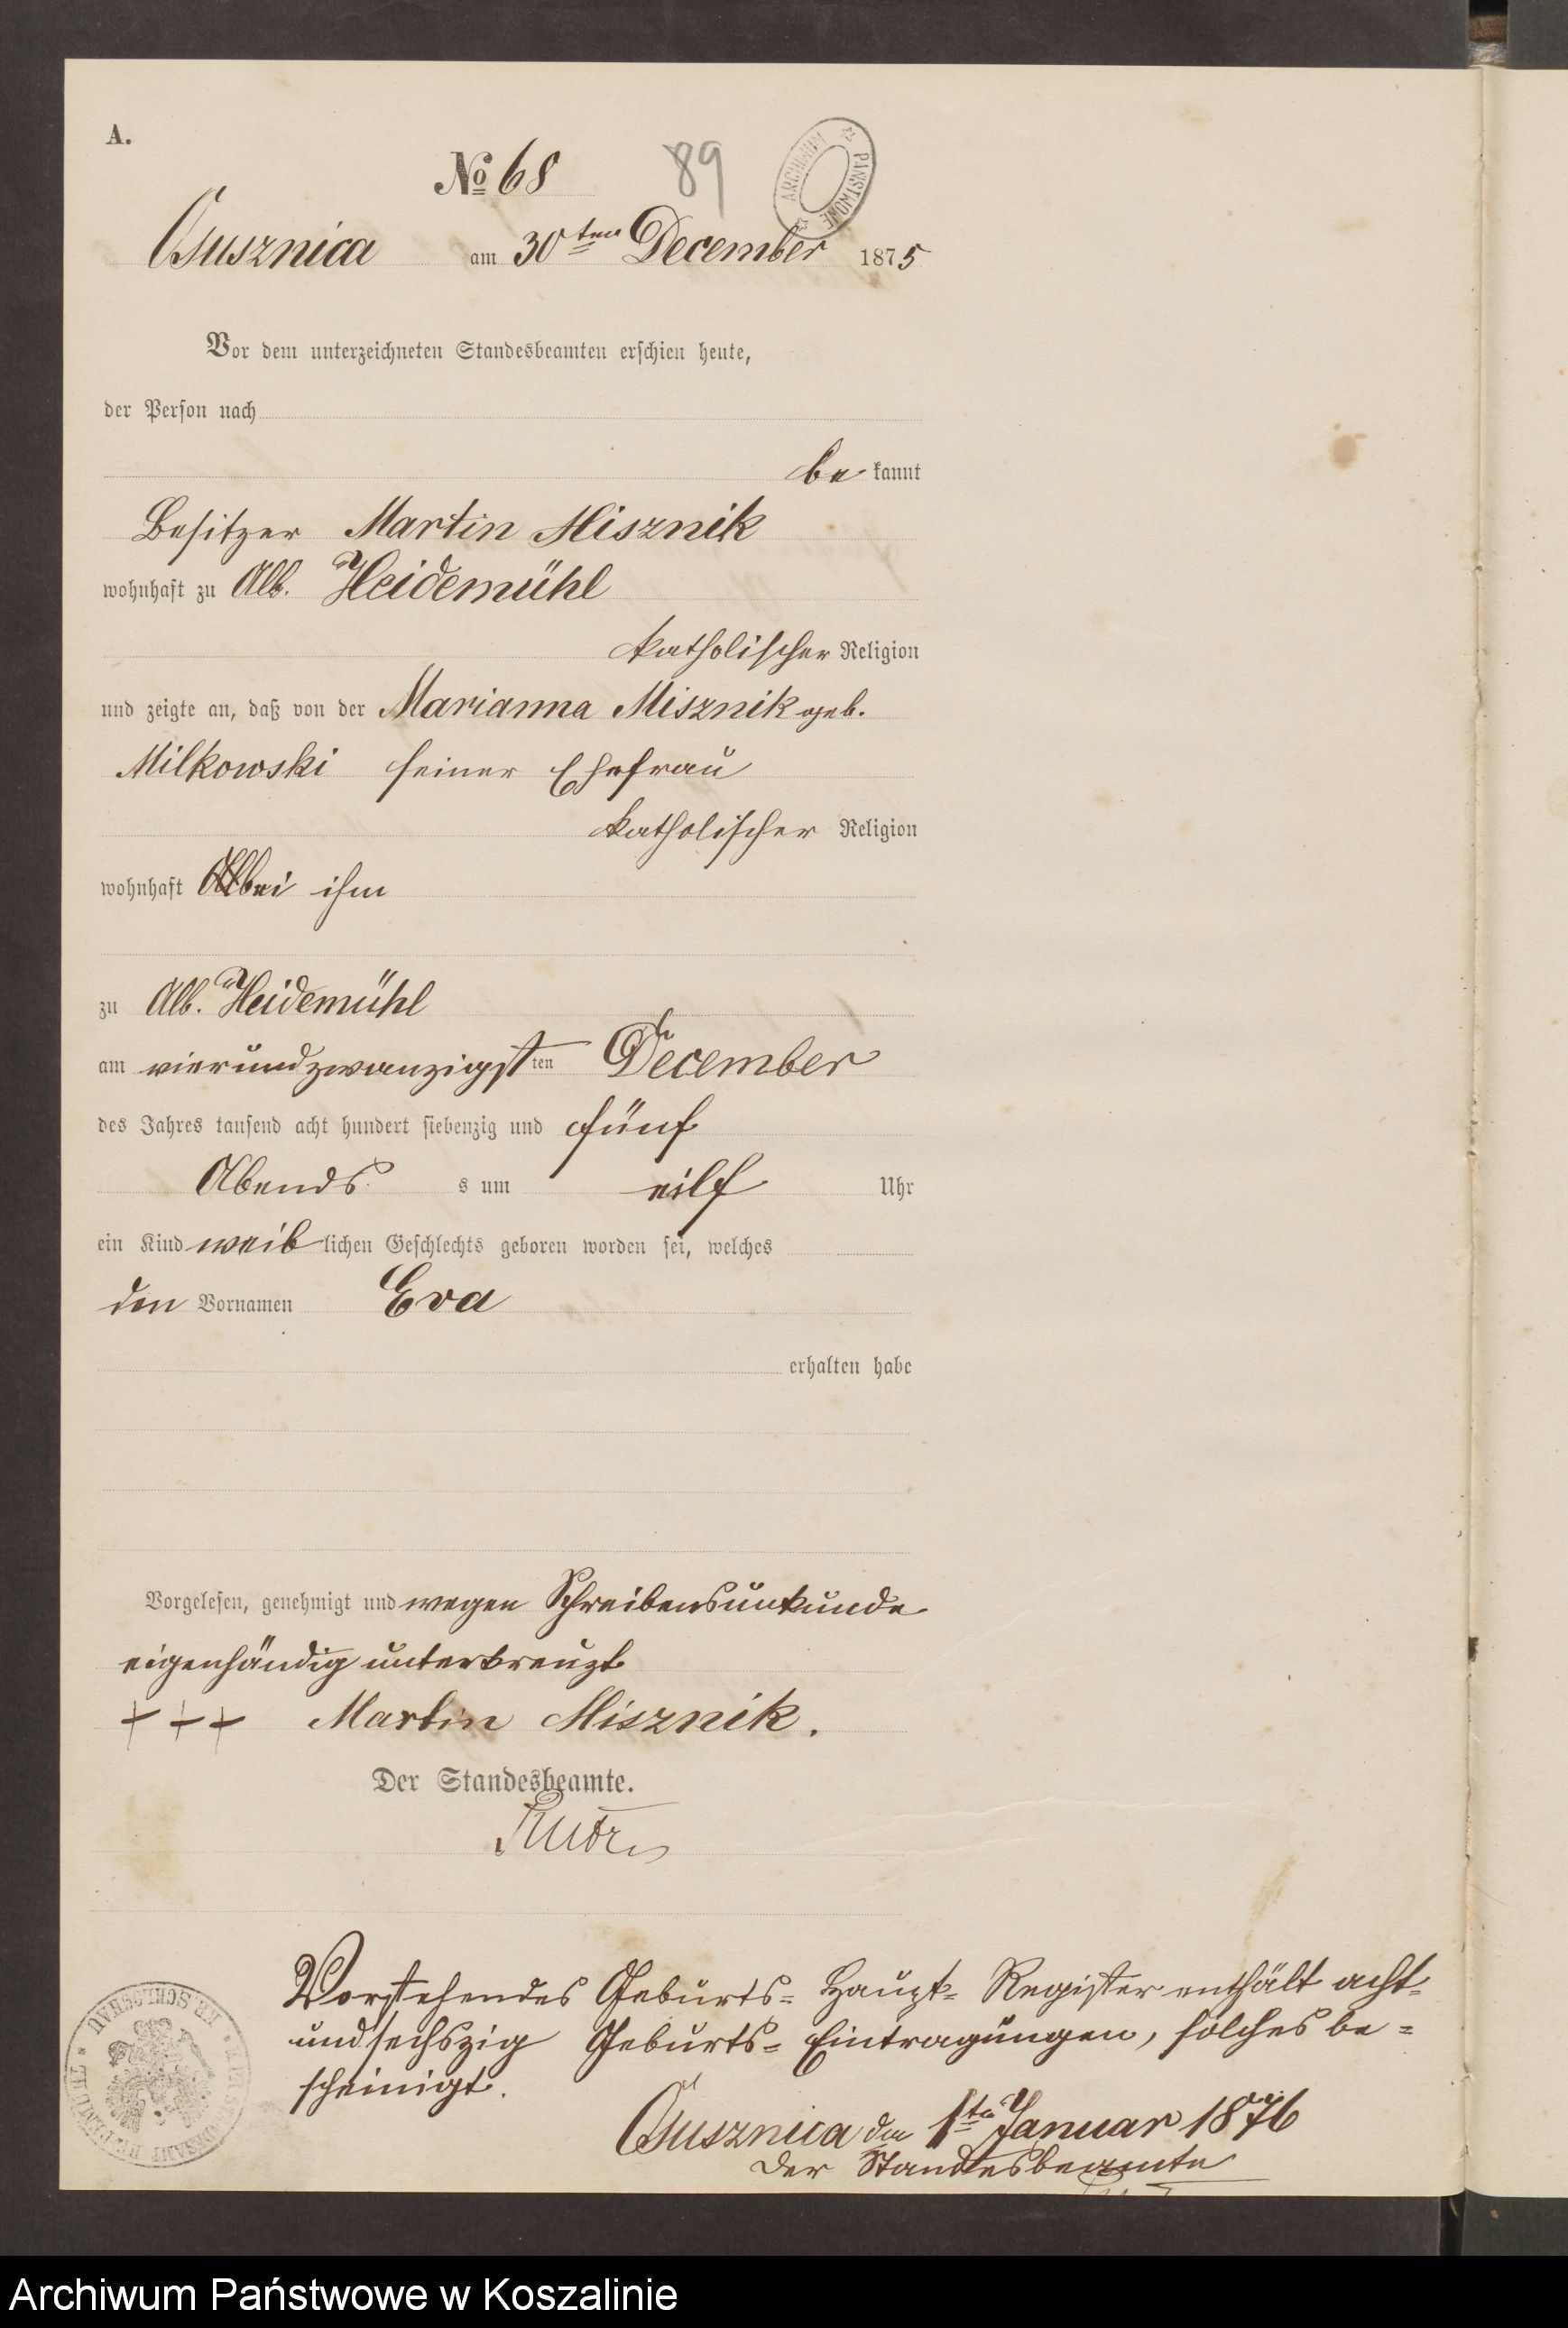 A.
№ 68
89
ARCHIWUM PAŃSTWOWE
Ossusznica am 30ten December 1875
Vor dem unterzeichneten Standesbeamten erschien heute,
der Person nach
be kannt
Besitzer Martin Misznik
wohnhaft zu Abb. Heidemühl
katholischer Religion
und zeigte an, daß von der Marianna Misznik geb.
Milkowski seiner Ehefrau
katholischer Religion
wohnhaft bei ihm
zu Abb. Heidemühl
am vierundzwanzigst ten December
des Jahres tausend acht hundert siebenzig und fünf
Abends s um eilf Uhr
ein Kind weib lichen Geschlechts geboren worden sei, welches
den Vornamen Eva
erhalten habe
Vorgelesen, genehmigt und wegen Schreibensunkunde
eigenhändig unterkreuzt
+++ Martin Misznik.
Der Standesbeamte.
Vorstehendes Geburts- Haupt- Register enthält acht-
undsechszig Geburts- Eintragungen, solches be-
scheinigt.
Ossusznica den 1ten Januar 1876
Der Standesbeamte
KR. SCHLOCHAU
Archiwum Państwowe w Koszalinie